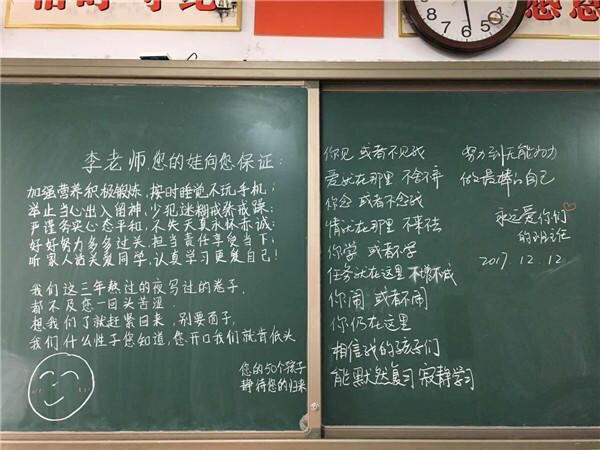 李老师您的娃向您保证：
加强营养积极锻炼，按时睡觉不玩手机；
举止当心出入留神，少犯迷糊戒骄戒躁；
严谨务实心态平和，不失天真永怀赤诚；
好好努力多多过头，担当责任享受当下；
听家人话关爱同学，认真学习更爱自己！
我们这三年熬过的夜写过的卷子，
都不及您一回头苦涩
想我们了就赶紧回来，别要面子，
我们什么性子您知道，您开口我们就肯低头
您的50个孩子
静待您的归来
你见 或者不见我
爱就在那里 不舍不弃
你念 或者不念我
情就在那里 不来不去
你学 或者不学
任务就在这里 不增不减
你闹 或者不闹
你仍在这里
相信我的孩子们
能默然复习 寂静学习
努力到无能为力
做最棒的自己
永远爱你们
的班
2017.12.12